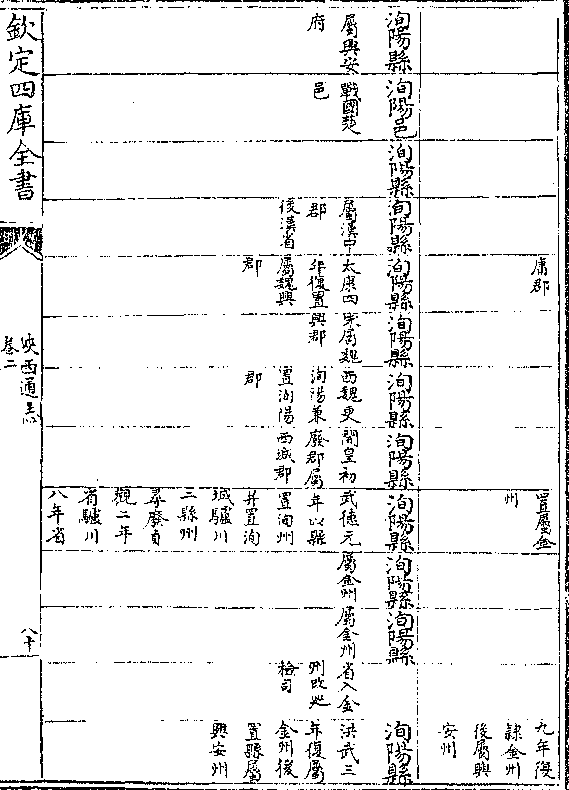 庸郡
置屬金
州
九年復
隸金州
後屬興
安州
洵陽縣
屬興安
府
洵陽邑
戰國楚
邑
洵陽縣
洵陽縣
屬漢中
郡
後漢省
洵陽縣
太康四
年復置
屬魏興
郡
洵陽縣
宋屬魏
興郡
洵陽縣
西魏更
洵陽兼
置洵陽
郡
洵陽縣
開皇初
廢郡屬
西城郡
洵陽縣
武德元
年以縣
置洵州
并置洵
城驢川
二縣州
尋廢貞
觀二年
省驢川
八年省
洵陽縣
屬金州
洵陽縣
屬金州
省入金
州改巡
檢司
洵陽縣
洪武三
年復屬
金州後
置縣屬
興安州
欽定四庫全書
陝西通志
卷二
八十